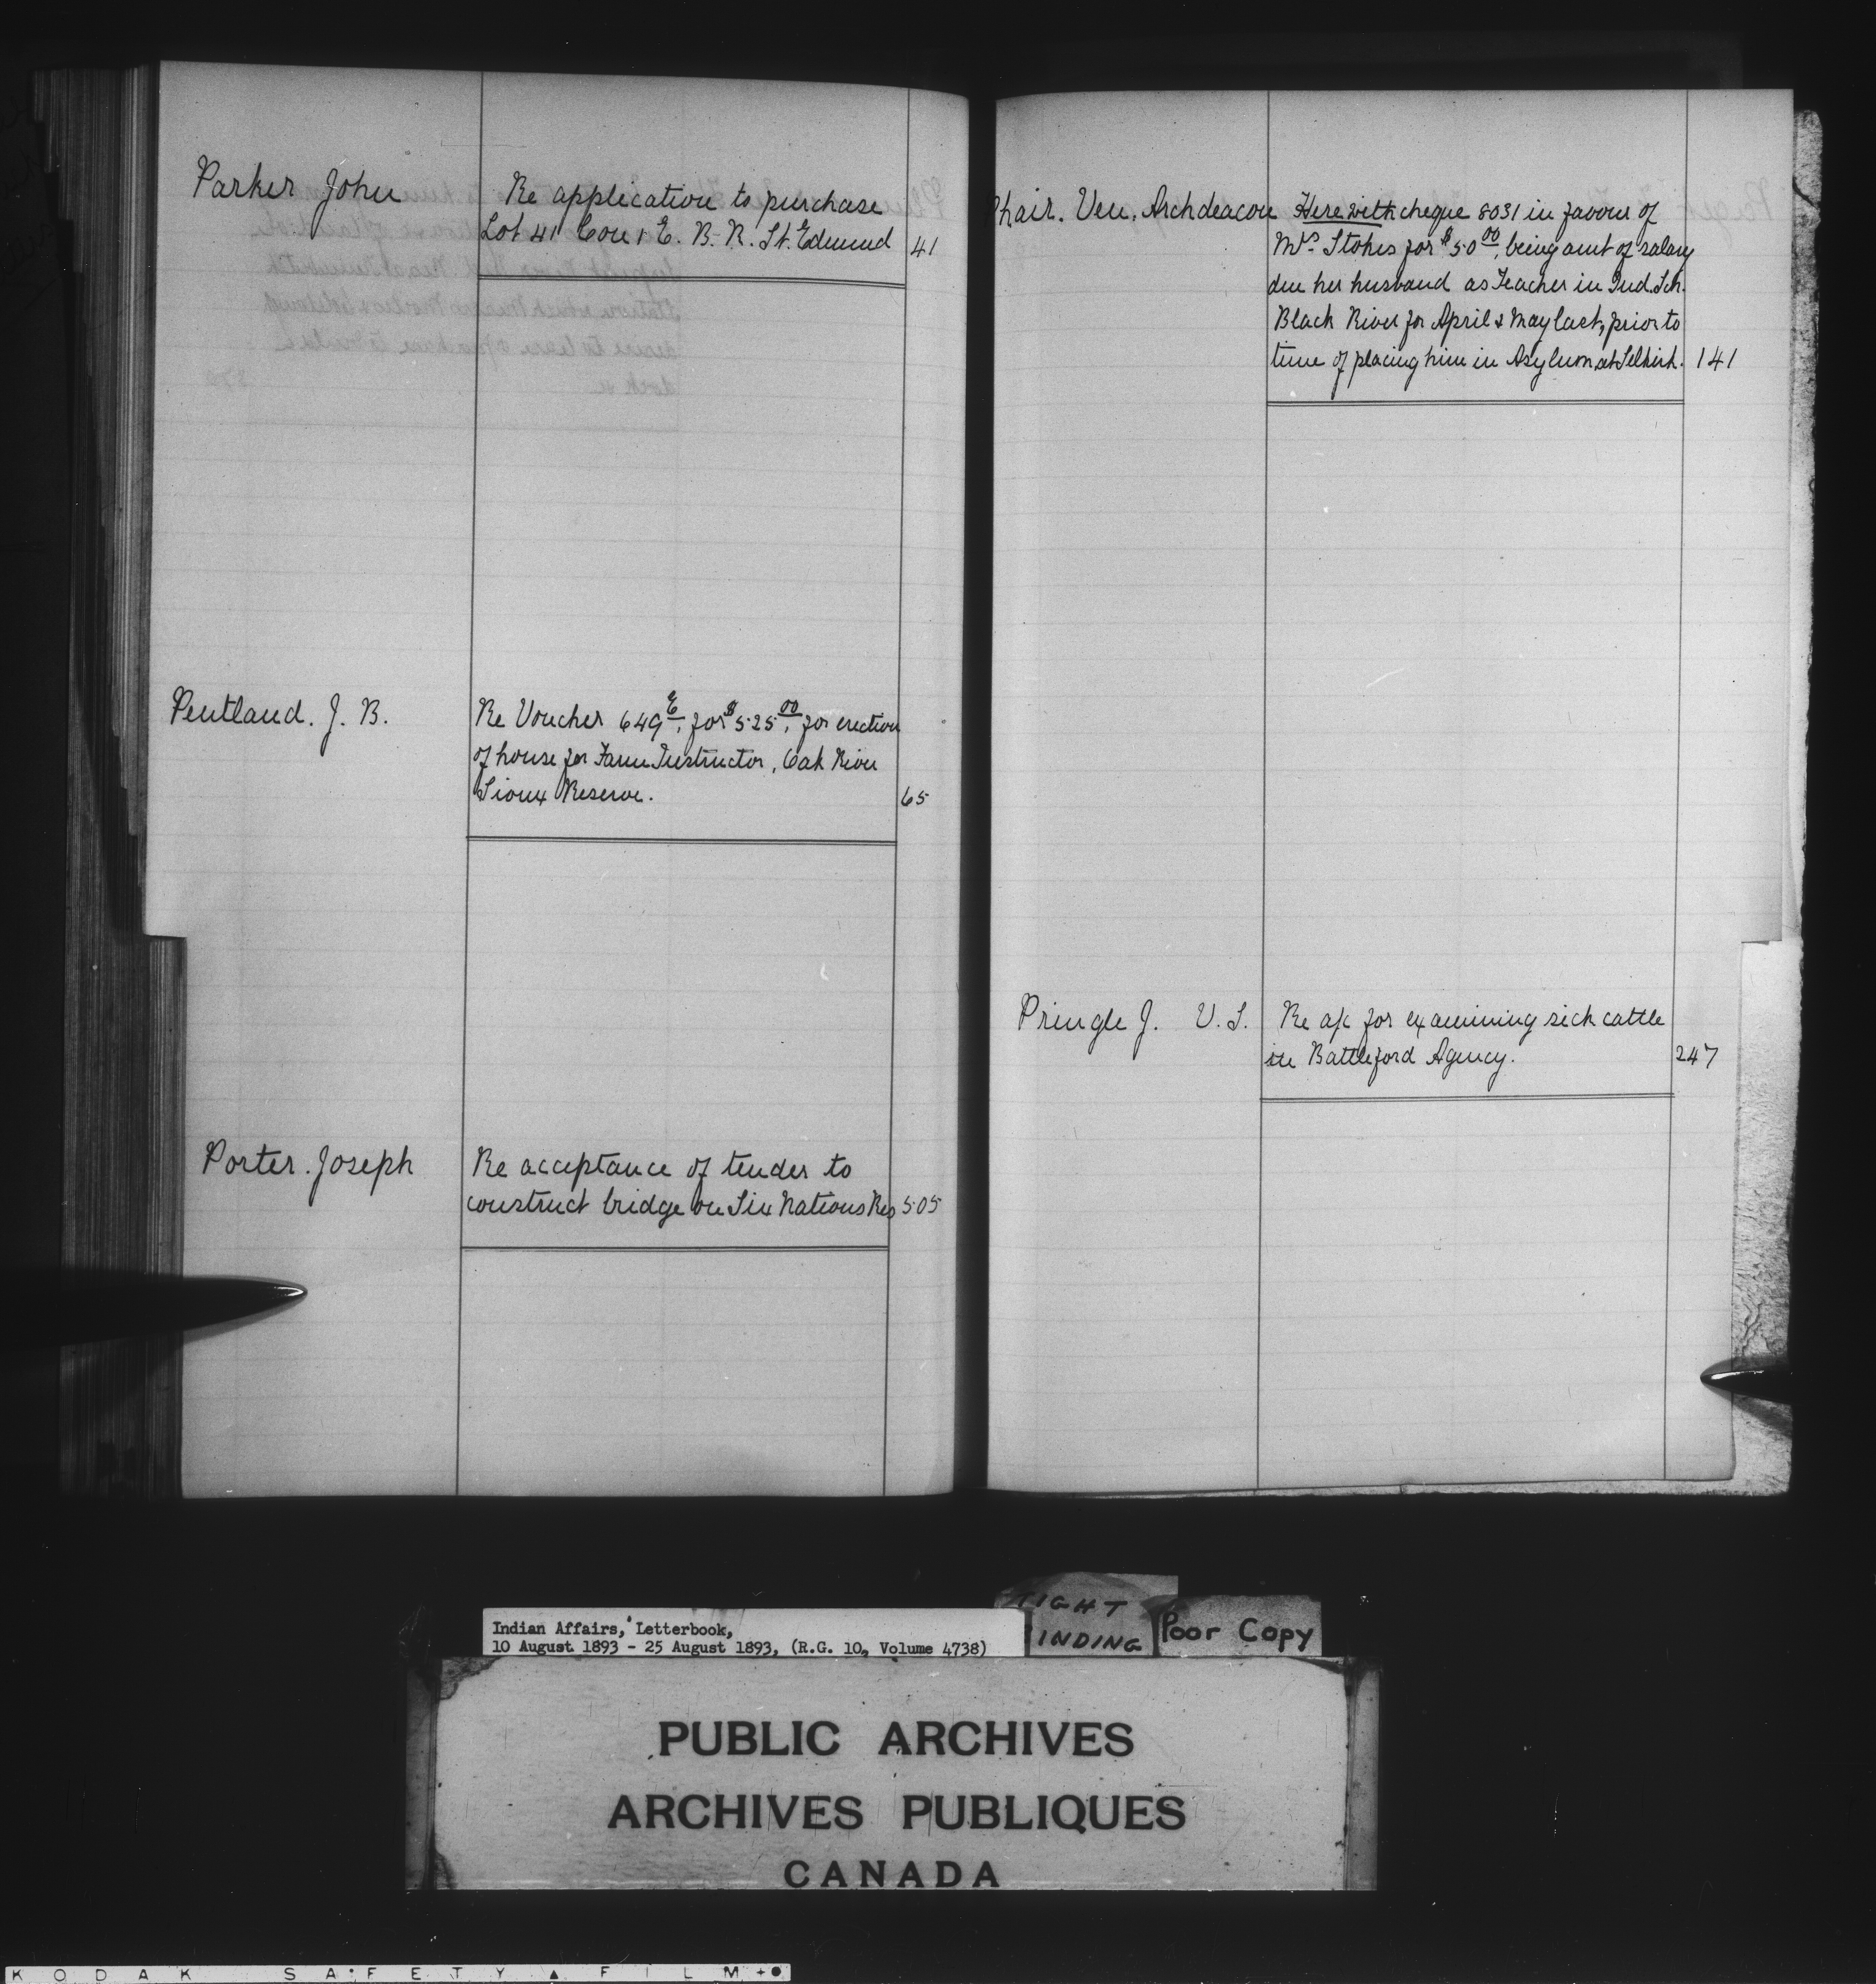 Parker John
Re application to purchase
Lot 41 Con 1 E. B. R. St. Edmund 41
Pentland. J. B.
Re Voucher 649 E, for $525.00, for erection
of house for Farm Instructor, Oak River
Sioux Reserve. 65
Porter. Joseph
Re acceptance of tender to
construct bridge on Six Nations Res 505
Phair. Ven. Archdeacon
Herewith cheque 8031 in favour of
Mrs. Stokes for $50.00, being amt of salary
due her husband as Teacher in Ind. Sch.
Black River for April & May last, prior to
time of placing him in Asylum at Selkirk. 141
Pringle J. V. S.
Re a/c for examining sick cattle
in Battleford Agency. 247
Indian Affairs, Letterbook,
10 August 1893 - 25 August 1893, (R.G. 10, Volume 4738)
TIGHT
INDING
Poor Copy
PUBLIC ARCHIVES
ARCHIVES PUBLIQUES
CANADA
KODAK SAFETY FILM